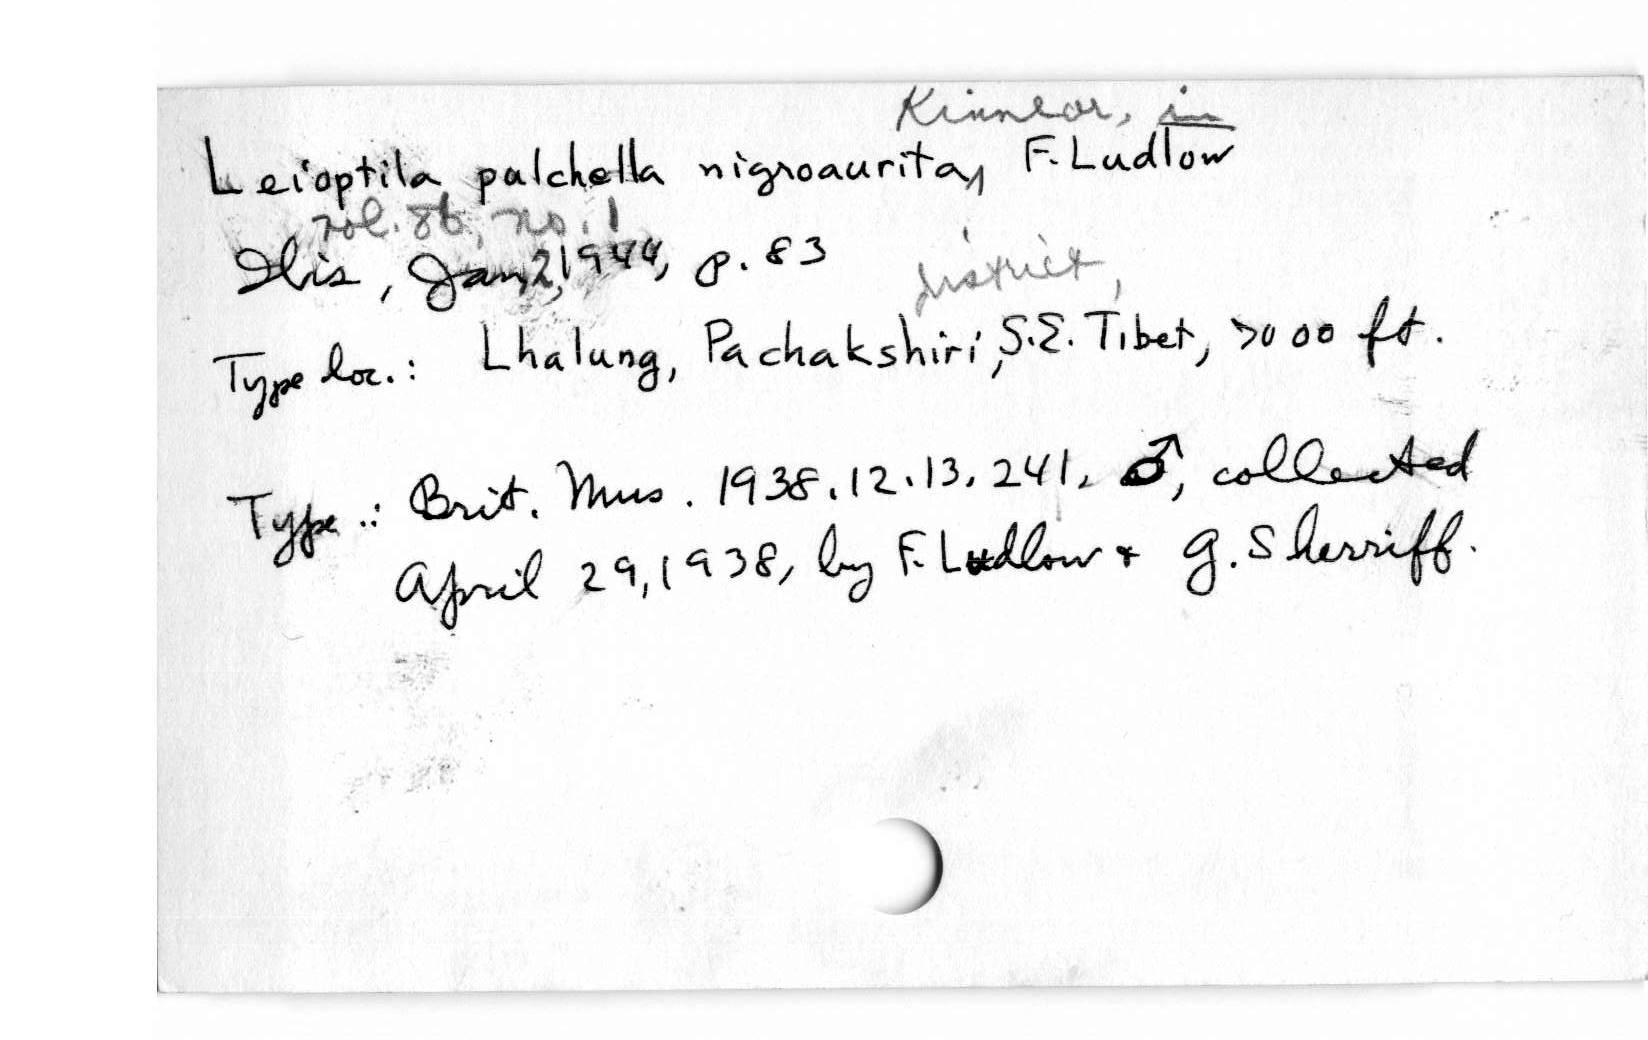 Kinnear, in
Leioptila pulchella nigroaurita, F. Ludlow
vol. 86, no. 1
Ibis, Jan 2, 1944, p. 83
district,
Type loc.: Lhalung, Pachakshiri, S.E. Tibet, 7000 ft.
Type: Brit. Mus. 1938.12.13.241, ♂, collected
April 29, 1938, by F. Ludlow & G. Sherriff.